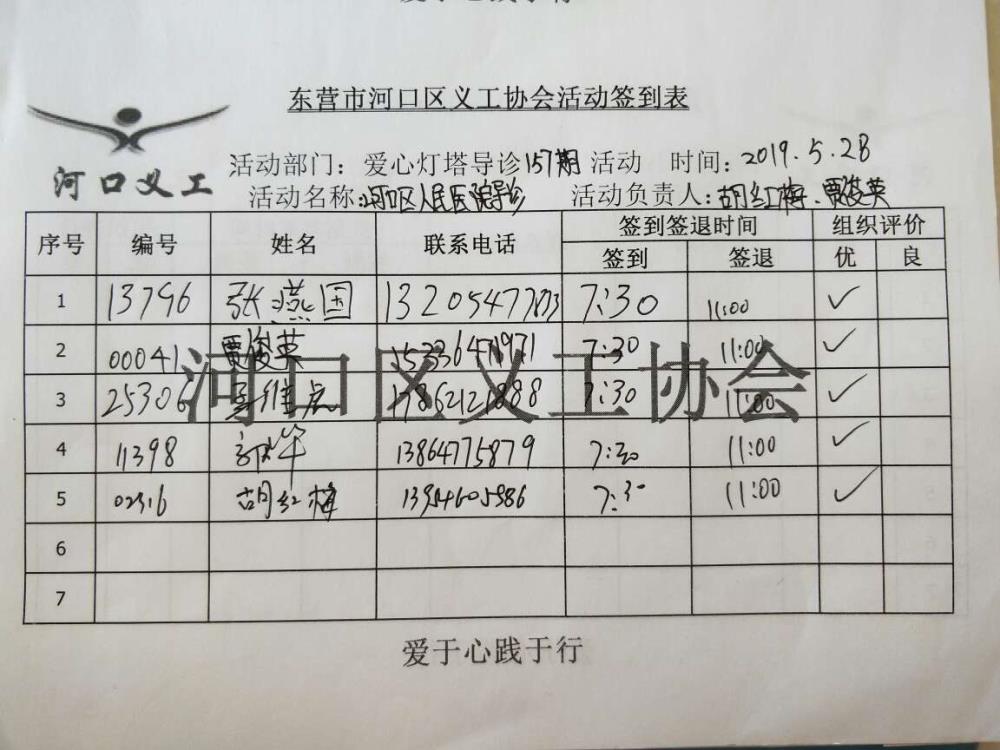 爱于心践于行
东营市河口区义工协会活动签到表
河口义工
活动部门：爱心灯塔导诊157期 活动 时间：2019.5.28
活动名称：河口区人民医院导诊 活动负责人：胡红梅、贾俊英
序号 编号 姓名 联系电话 签到签退时间 组织评价
签到 签退 优 良
1 13796 张燕国 7:30 11:00 ✓
2 00041 贾俊英 7:30 11:00 ✓
3 25306 7:30 11:00 ✓
4 11398 13864775879 7:30 11:00 ✓
5 胡红梅 7:30 11:00 ✓
6
7
河口区义工协会
爱于心践于行